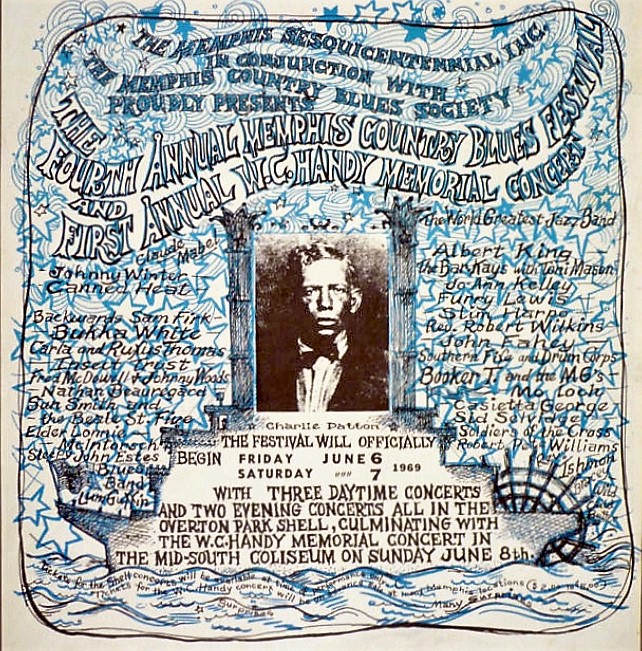 THE MEMPHIS SESQUICENTENNIAL INC.
IN CONJUNCTION WITH
THE MEMPHIS COUNTRY BLUES SOCIETY
PROUDLY PRESENTS
THE
FOURTH ANNUAL MEMPHIS COUNTRY BLUES FESTIVAL
AND
FIRST ANNUAL W.C. HANDY MEMORIAL CONCERT
Claude Mabel
Johnny Winter
Canned Heat
Backwards Sam Firk
Bukka White
Carla and Rufus Thomas
Insect Trust
Fred McDowell & Johnny Woods
Nathan Beauregard
Sun Smith and
the Beale St. Five
Elder Lonnie
McIntorsh
Sleepy John Estes
Blues
Band
Lum Guffin
the World Greatest Jazz Band
Albert King
the Bar Kays with Toni Mason
Jo Ann Kelley
Furry Lewis
Slim Harpo
Rev. Robert Wilkins
John Fahey
Southern Fife and Drum Corps
Booker T. and the MG's
Mo Loch
Casietta George
Sid Selvidge
Soldiers of the Cross
Robert Pete Williams
Ishmon
Bracey
Wild
Charlie Patton
THE FESTIVAL WILL OFFICIALLY
BEGIN FRIDAY JUNE 6
SATURDAY """ 7 1969
WITH THREE DAYTIME CONCERTS
AND TWO EVENING CONCERTS ALL IN THE
OVERTON PARK SHELL, CULMINATING WITH
THE W.C. HANDY MEMORIAL CONCERT IN
THE MID-SOUTH COLISEUM ON SUNDAY JUNE 8th.
Tickets for the Shell concerts will be available at time of performance only
Tickets for the W.C. Handy concert will be on advance sale at many Memphis locations
Surprizes
Many Surprizes